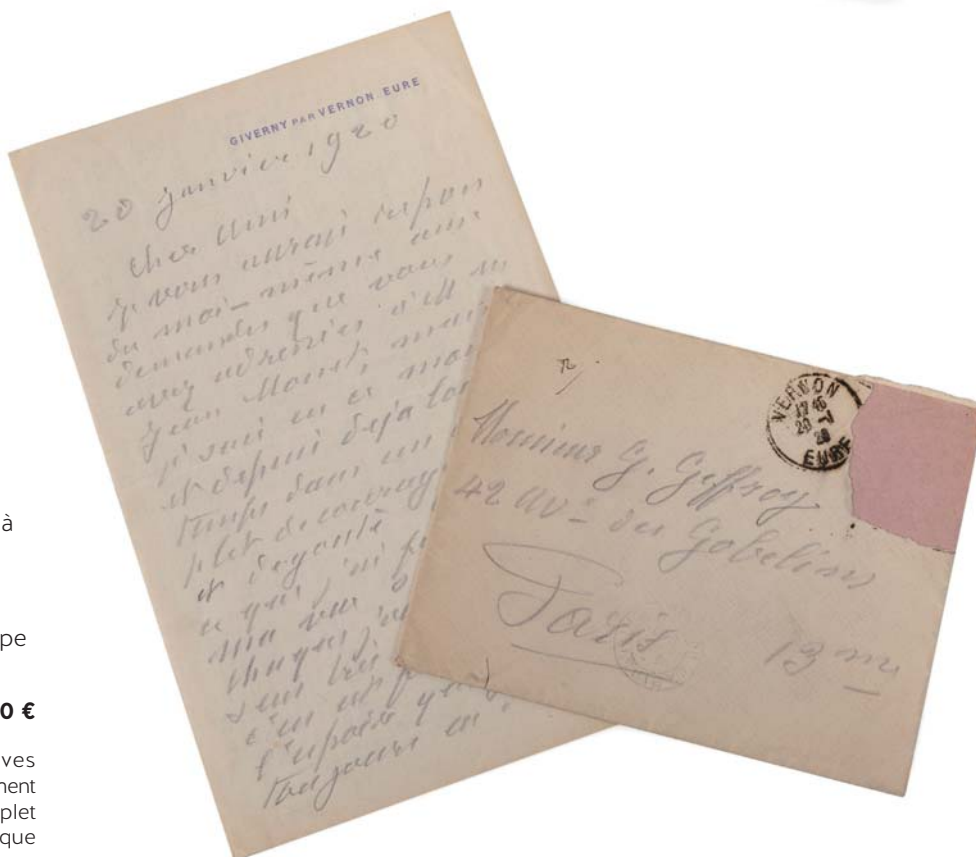 GIVERNY PAR VERNON EURE
20 janvier 1920
Cher Ami
je vous aurais répon
du moi-même aux
demandes que vous
avez adressées
mais
je suis en ce mo
et depuis déjà lon
temps dans un
plet décourag
et dégouté
ce que j'ai f
Ma vue
chaque
sens très
c'en est f
l'espoir que
toujours eu
VERNON
EURE
Monsieur G. Geffroy
42 Av. des Gobelins
Paris 13 me
à
pe
0 €
ves
ment
plet
que